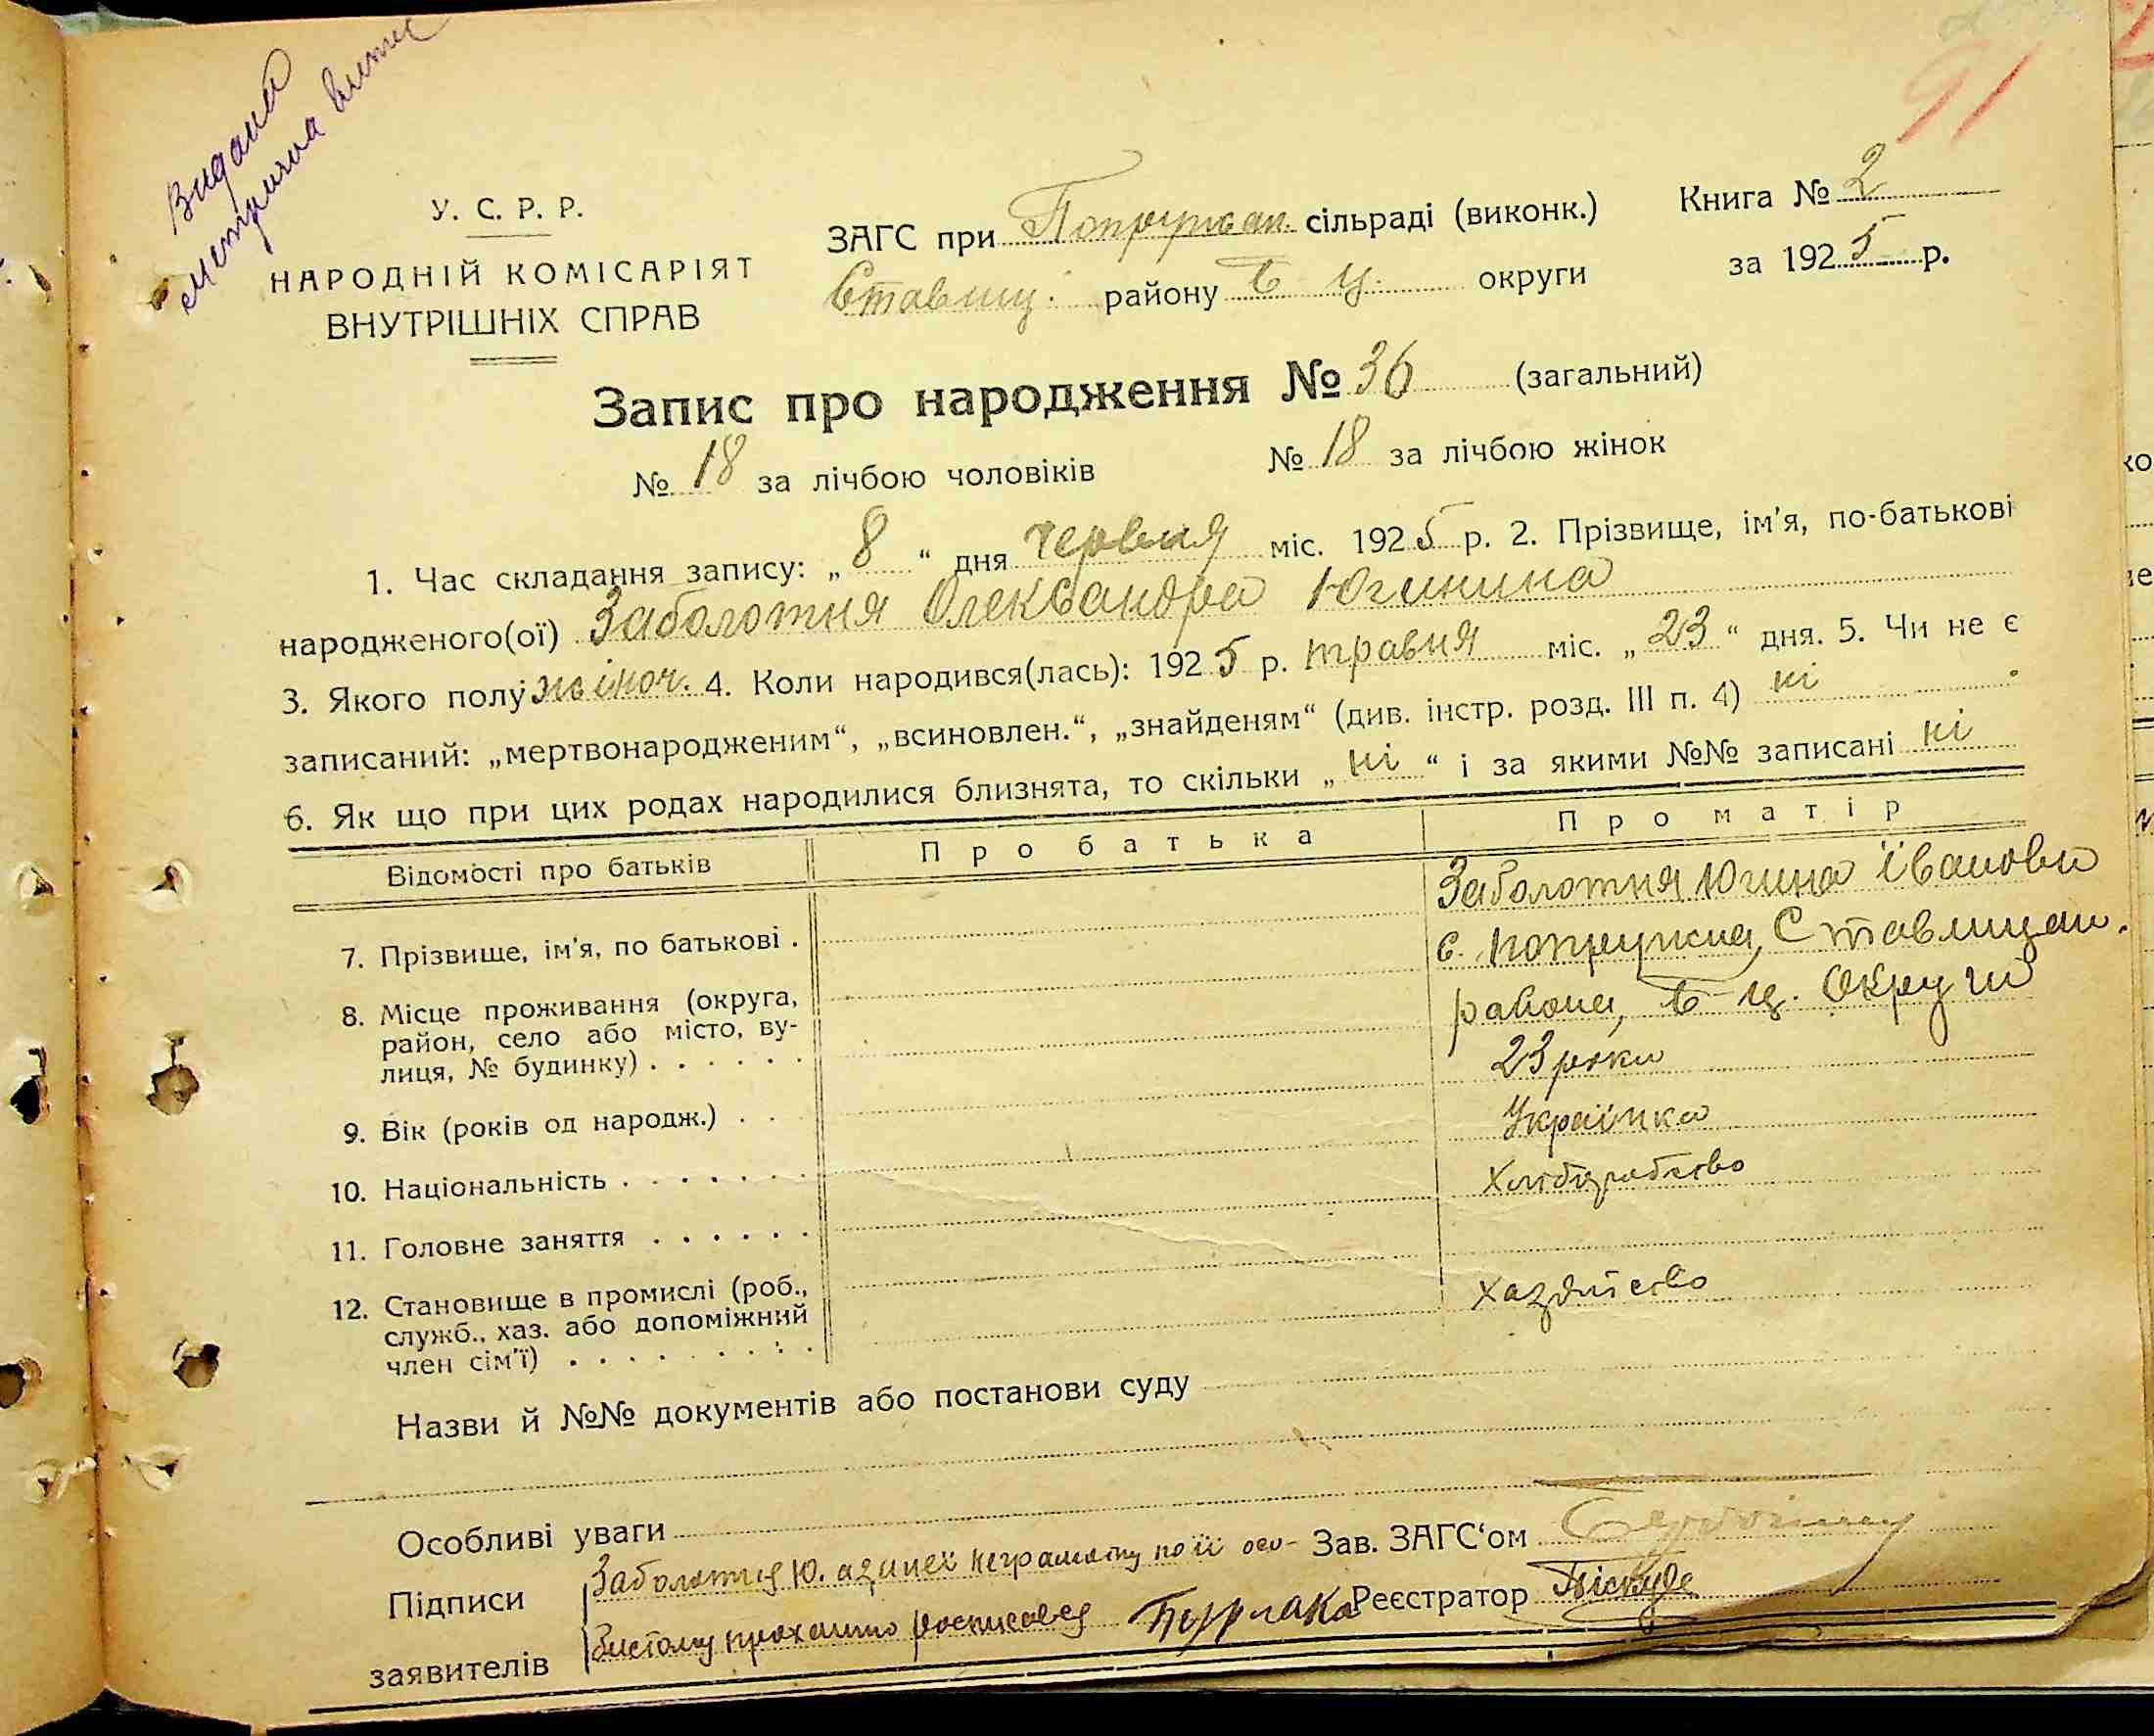 Видана
метрична
91
У. С. Р. Р.
НАРОДНІЙ КОМІСАРІЯТ
ВНУТРІШНІХ СПРАВ
ЗАГС при Попружан. сільраді (виконк.)
Книга № 2
Ставищ. району Б Ц. округи
за 1925 р.
Запис про народження № 36 (загальний)
№ 18 за лічбою чоловіків № 18 за лічбою жінок
1. Час складання запису: „8“ дня червня міс. 1925 р. 2. Прізвище, ім'я, по-батькові
народженого(ої) Заболотня Олександра Югинина
3. Якого полу жіноч. 4. Коли народився(лась): 1925 р. травня міс. „23“ дня. 5. Чи не є
записаний: „мертвонародженим“, „всиновлен.“, „знайденям“ (див. інстр. розд. III п. 4) ні
6. Як що при цих родах народилися близнята, то скільки „ні“ і за якими №№ записані ні
Відомості про батьків
Про батька
Про матір
7. Прізвище, ім'я, по батькові .
Заболотня Югина Їванови
8. Місце проживання (округа,
район, село або місто, ву-
лиця, № будинку) . . . . . .
с. Попружна, Ставищан.
района, Б-Ц. Округи
9. Вік (років од народж.) . .
23 роки
10. Національність . . . . . . .
Українка
11. Головне заняття . . . . . .
Хліборобство
12. Становище в промислі (роб.,
служб., хаз. або допоміжний
член сім'ї) . . . . . . . . .
хазяйство
Назви й №№ документів або постанови суду
Особливі уваги
Підписи
заявителів
Заболотня Ю. а за неї неграмотну по її осо-
бистому проханню росписався Бурлака
Зав. ЗАГС'ом
Реєстратор